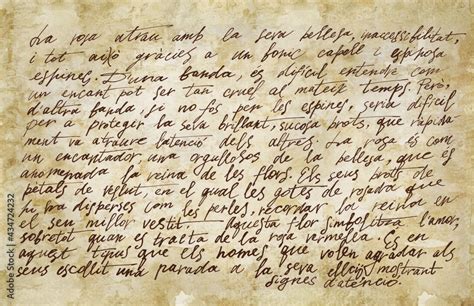 La rosa atrau amb la seva bellesa, inaccessibilitat,
i tot això gràcies a un bonic capell i espinosa
espines. D'una banda, es difícil entendre com
un encant pot ser tan cruel al mateix temps. Però,
d'altra banda, si no fos per les espines, seria difícil
per a protegir la seva brillant, sucosa brots, que ràpida
ment va atraure l'atenció dels altres. La rosa es com
un encantador, una orgullosos de la bellesa, que es
anomenada la reina de les flors. Els seus brots de
petals de vellut, en el qual les gotes de rosada que
hi ha disperses com les perles, recordar la reina en
el seu millor vestit. Aquesta flor simbolitza l'amor,
sobretot quan es tracta de la rosa vermella. És en
aquest tipus que els homes, que volen agradar als
seus escollit una parada a la seva elecció, mostrant
signes d'atenció.
Adobe Stock | #434724232